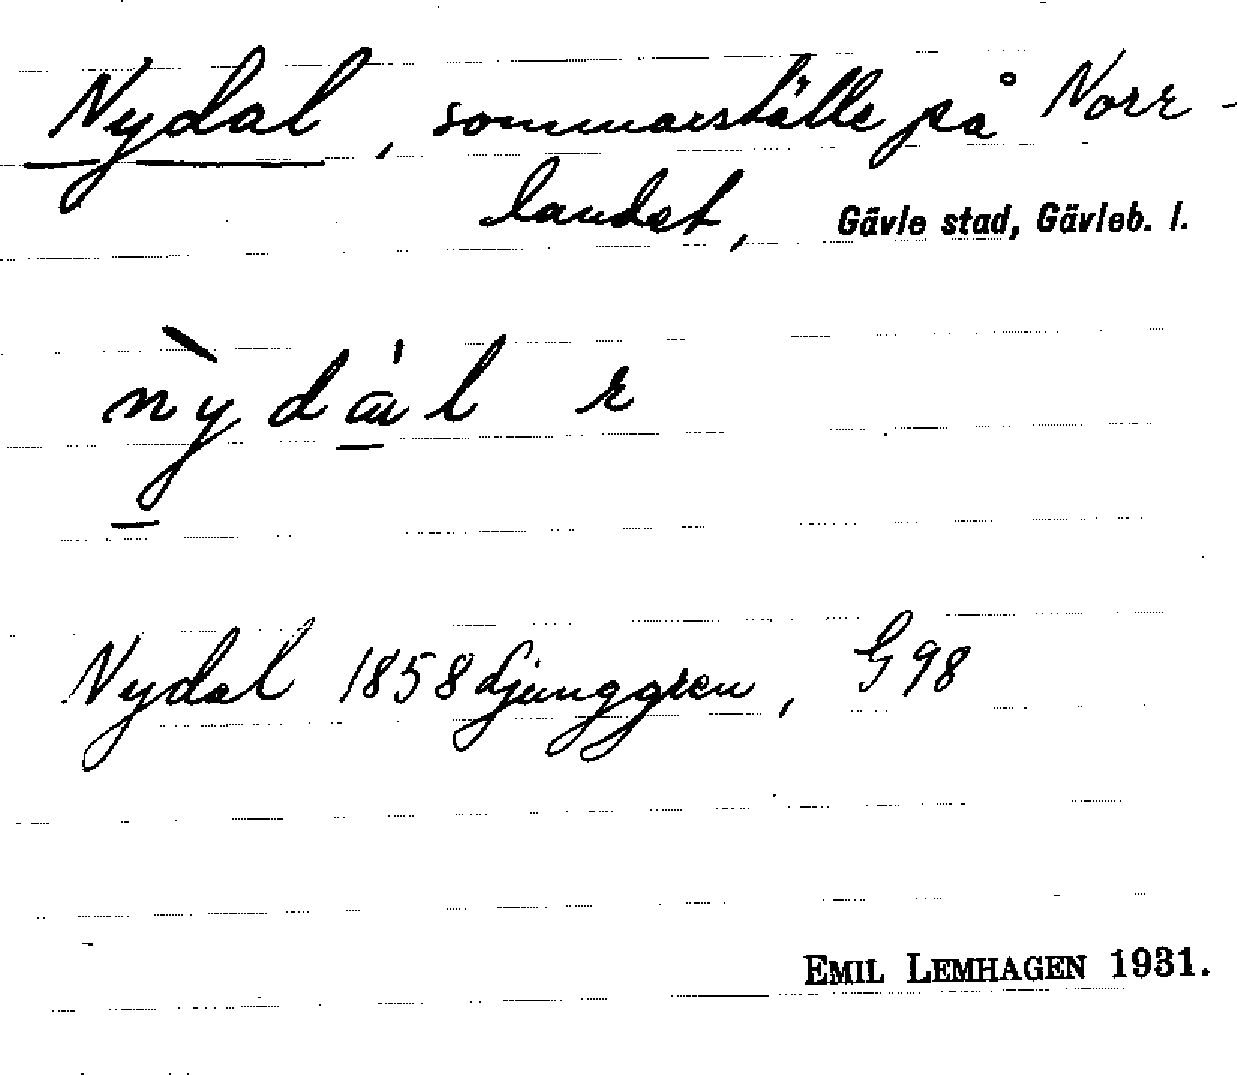 Nydal, sommarställe på Norr-
landet, Gävle stad, Gävleb. l.
ǹydál r
Nydal 1858 Ljunggren, G 98
EMIL LEMHAGEN 1931.